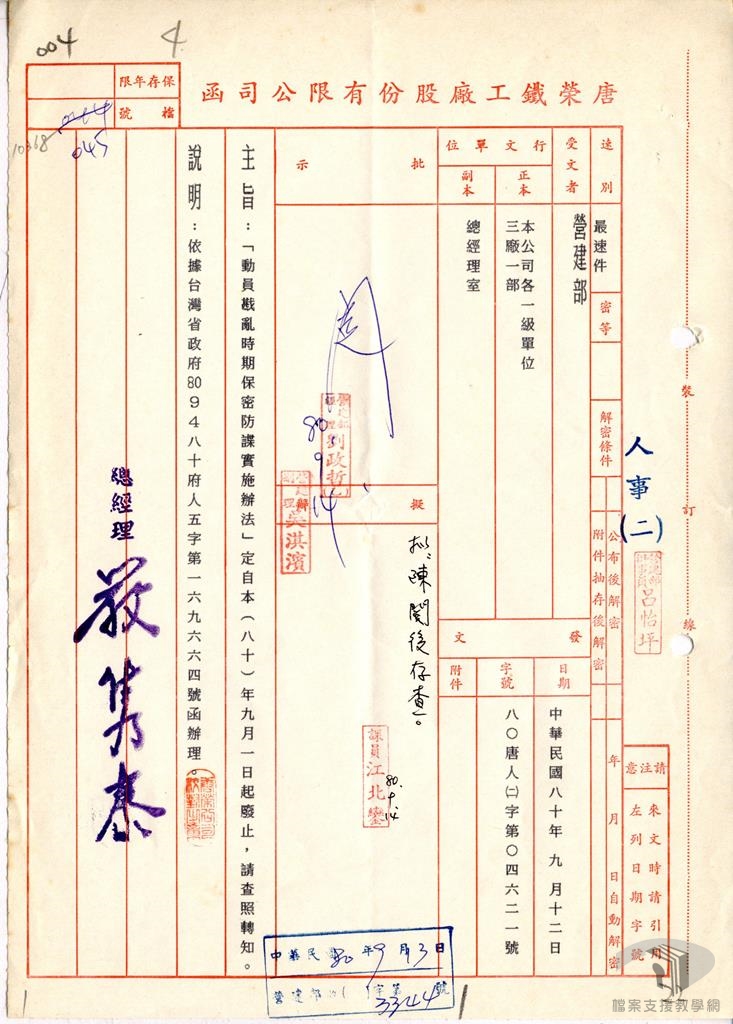 唐榮鐵工廠股份有限公司函
保存年限
檔號
004
4
044
045
10368
速別
最速件
密等
解密條件
公布後解密
附件抽存後解密
年 月 日自動解密
受文者
營建部
行文單位
正本
本公司各一級單位
三廠一部
副本
總經理室
發文
日期
中華民國八十年九月十二日
字號
八〇唐人㈡字第〇四六二一號
附件
批示
80.9.14
擬辦
擬:陳閱後存查。
課員 江北鑾
80.9.14
劉政哲
吳淇濱
主旨:「動員戡亂時期保密防諜實施辦法」定自本(八十)年九月一日起廢止,請查照轉知。
說明:依據台灣省政府80 9 4八十府人五字第一六九六六四號函辦理。
總經理 嚴雋泰
人事(二)
呂怡坪
裝訂線
請注意
來文時請引用
左列日期字號
中華民國80年9月13日
營建部收( )字第3344號
檔案支援教學網